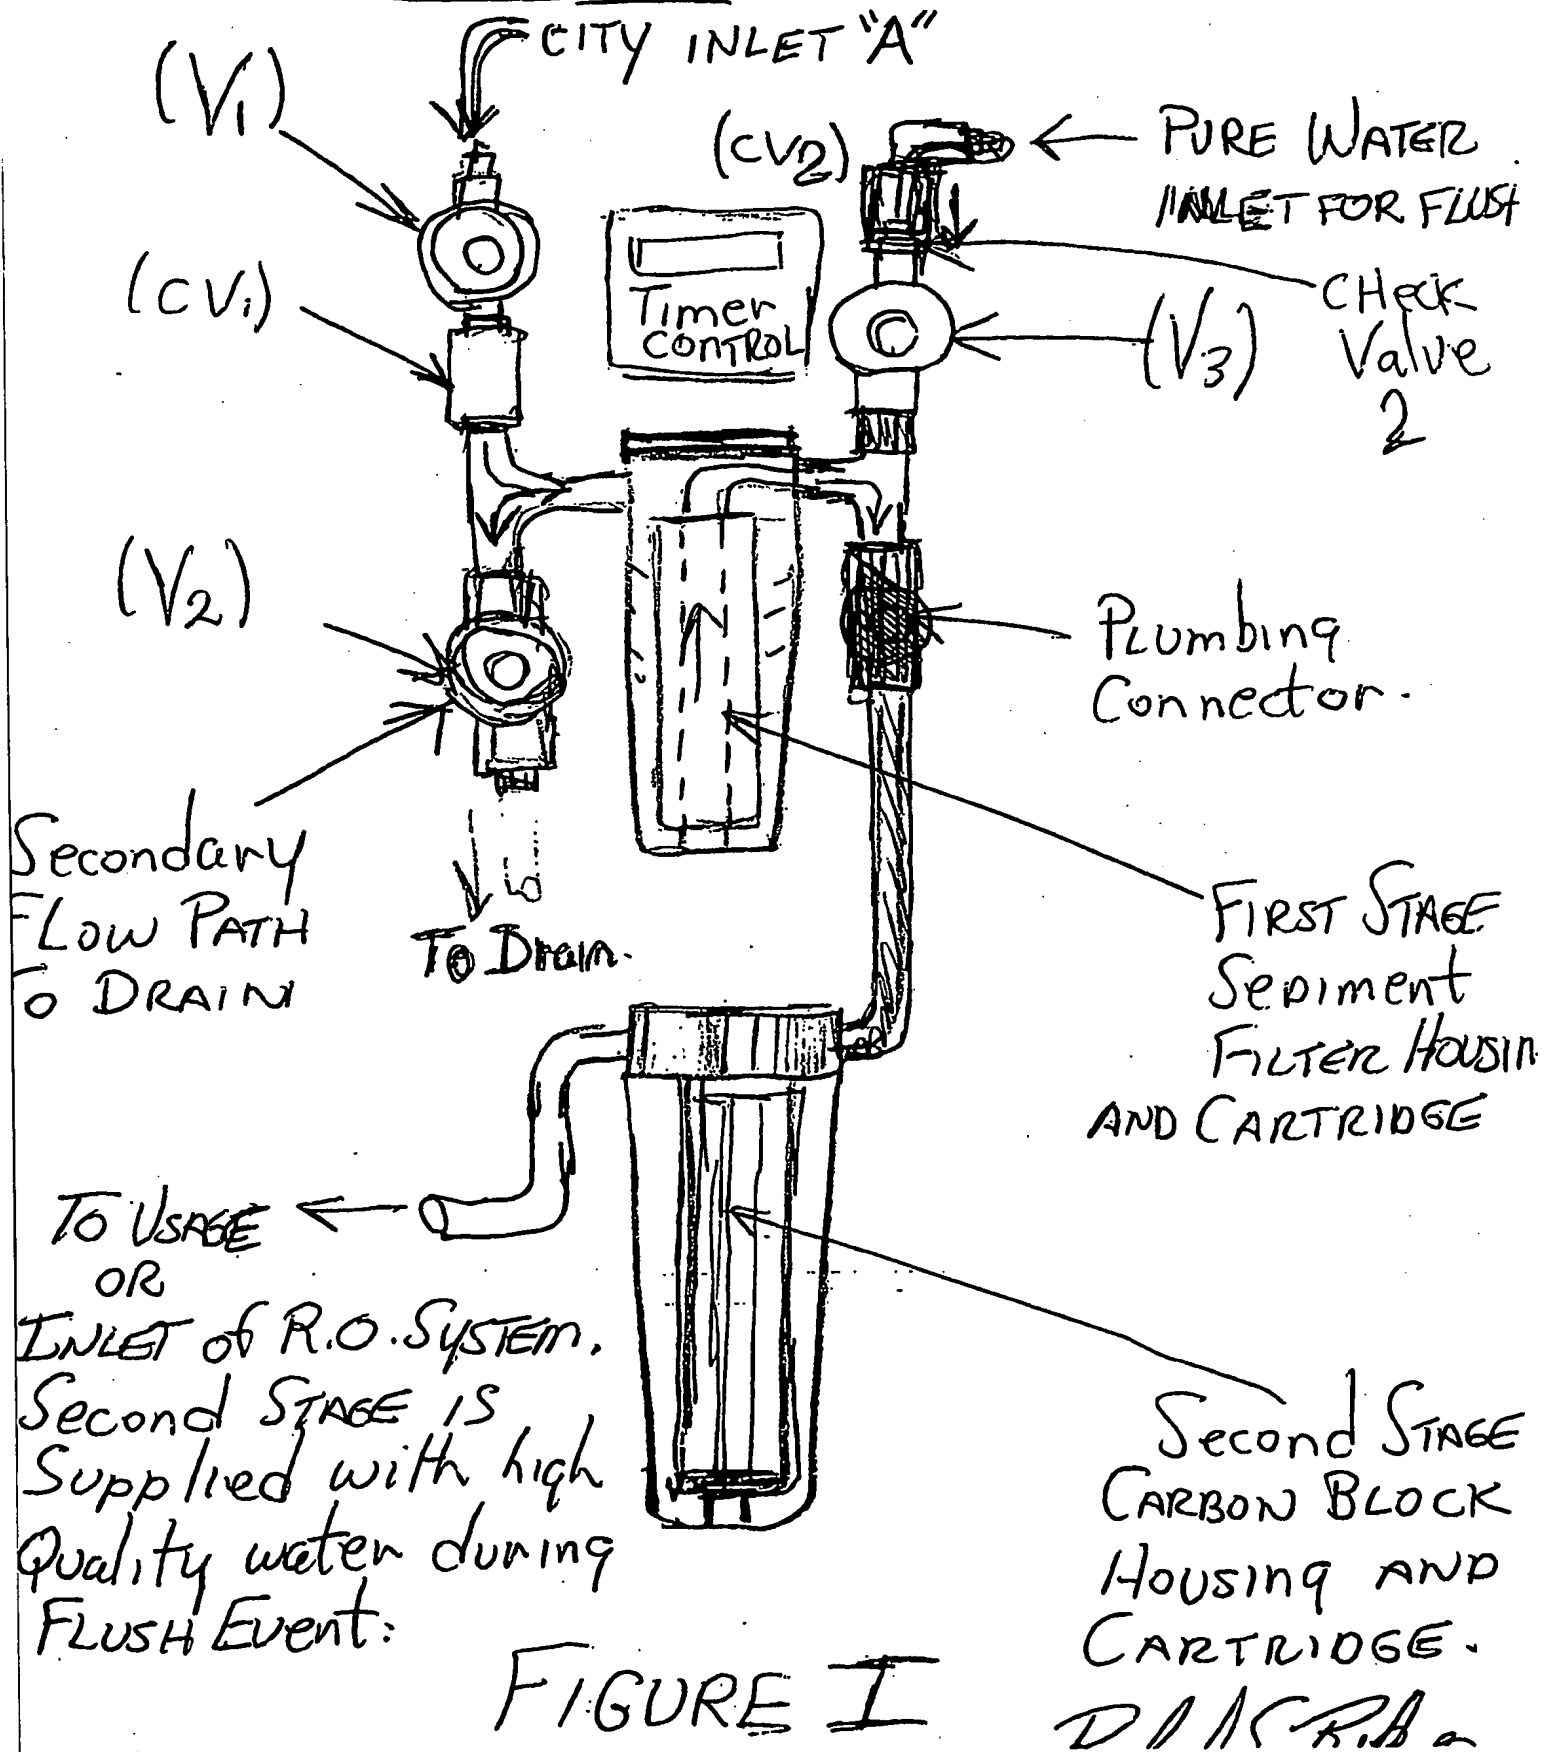 CITY INLET "A"
(V1)
(CV2)
PURE WATER
INLET FOR FLUSH
(CV1)
Timer
CONTROL
CHeck
Valve
2
(V3)
(V2)
PLumbing
Connector.
Secondary
FLOW PATH
To DRAIN
To Drain.
FIRST STAGE
SeDiment
FILTER HOUSIN
AND CARTRIDGE
TO USAGE
OR
INLET of R.O. SYSTEM.
Second STAGE IS
Supplied with high
Quality water during
FLUSH Event.
Second STAGE
CARBON BLOCK
HOUSING AND
CARTRIDGE.
FIGURE I